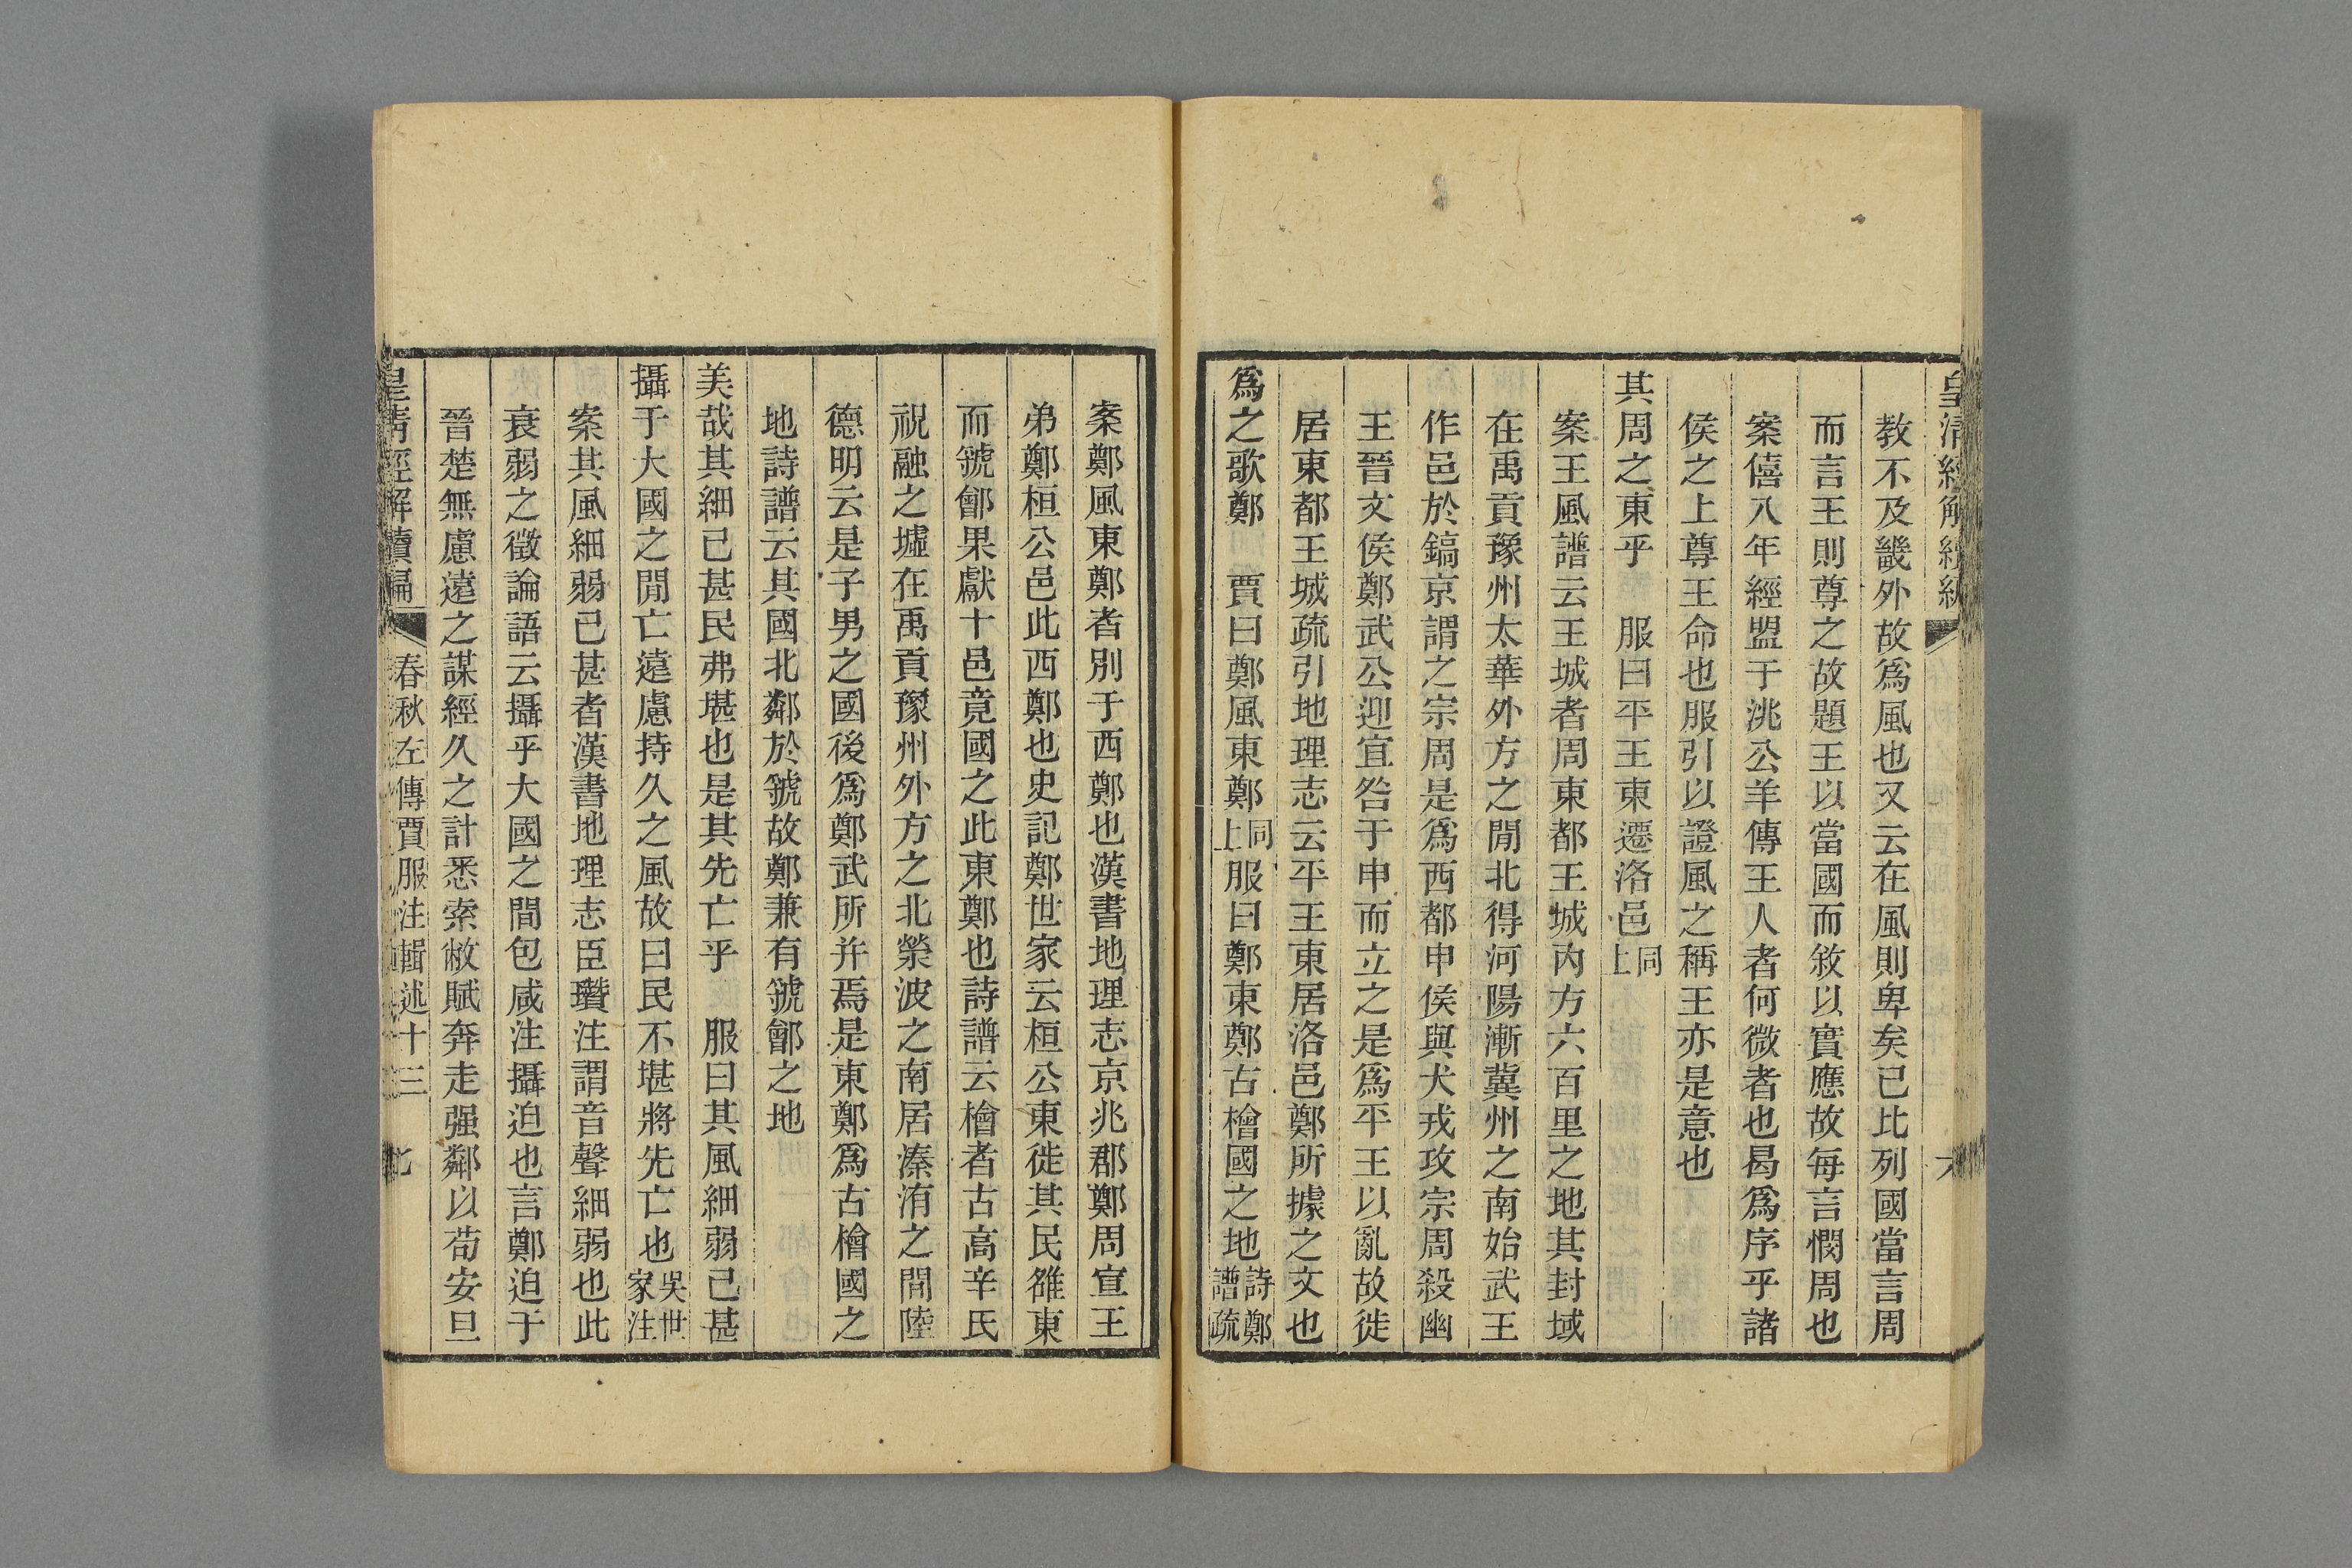 皇清經解續編
教不及畿外故爲風也又云在風則卑矣已比列國當言周
而言王則尊之故題王以當國而敘以實應故每言憫周也
案僖八年經盟于洮公羊傳王人者何微者也曷爲序乎諸
侯之上尊王命也服引以證風之稱王亦是意也
其周之東乎　服曰平王東遷洛邑同上
案王風譜云王城者周東都王城內方六百里之地其封域
在禹貢豫州太華外方之閒北得河陽漸冀州之南始武王
作邑於鎬京謂之宗周是爲西都申侯與犬戎攻宗周殺幽
王晉文侯鄭武公迎宜咎于申而立之是爲平王以亂故徙
居東都王城疏引地理志云平王東居洛邑鄭所據之文也
爲之歌鄭　賈曰鄭風東鄭同上服曰鄭東鄭古檜國之地詩鄭譜疏
案鄭風東鄭者別于西鄭也漢書地理志京兆郡鄭周宣王
弟鄭桓公邑此西鄭也史記鄭世家云桓公東徙其民雒東
而虢鄶果獻十邑竟國之此東鄭也詩譜云檜者古高辛氏
祝融之墟在禹貢豫州外方之北滎波之南居溱洧之間陸
德明云是子男之國後爲鄭武所并焉是東鄭爲古檜國之
地詩譜云其國北鄰於虢故鄭兼有虢鄶之地
美哉其細已甚民弗堪也是其先亡乎　服曰其風細弱已甚
攝于大國之閒亡遠慮持久之風故曰民不堪將先亡也吳世家注
案其風細弱已甚者漢書地理志臣瓚注謂音聲細弱也此
衰弱之徵論語云攝乎大國之間包咸注攝迫也言鄭迫于
晉楚無慮遠之謀經久之計悉索敝賦奔走强鄰以苟安旦
皇清經解續編　春秋左傳賈服注輯述十三　七